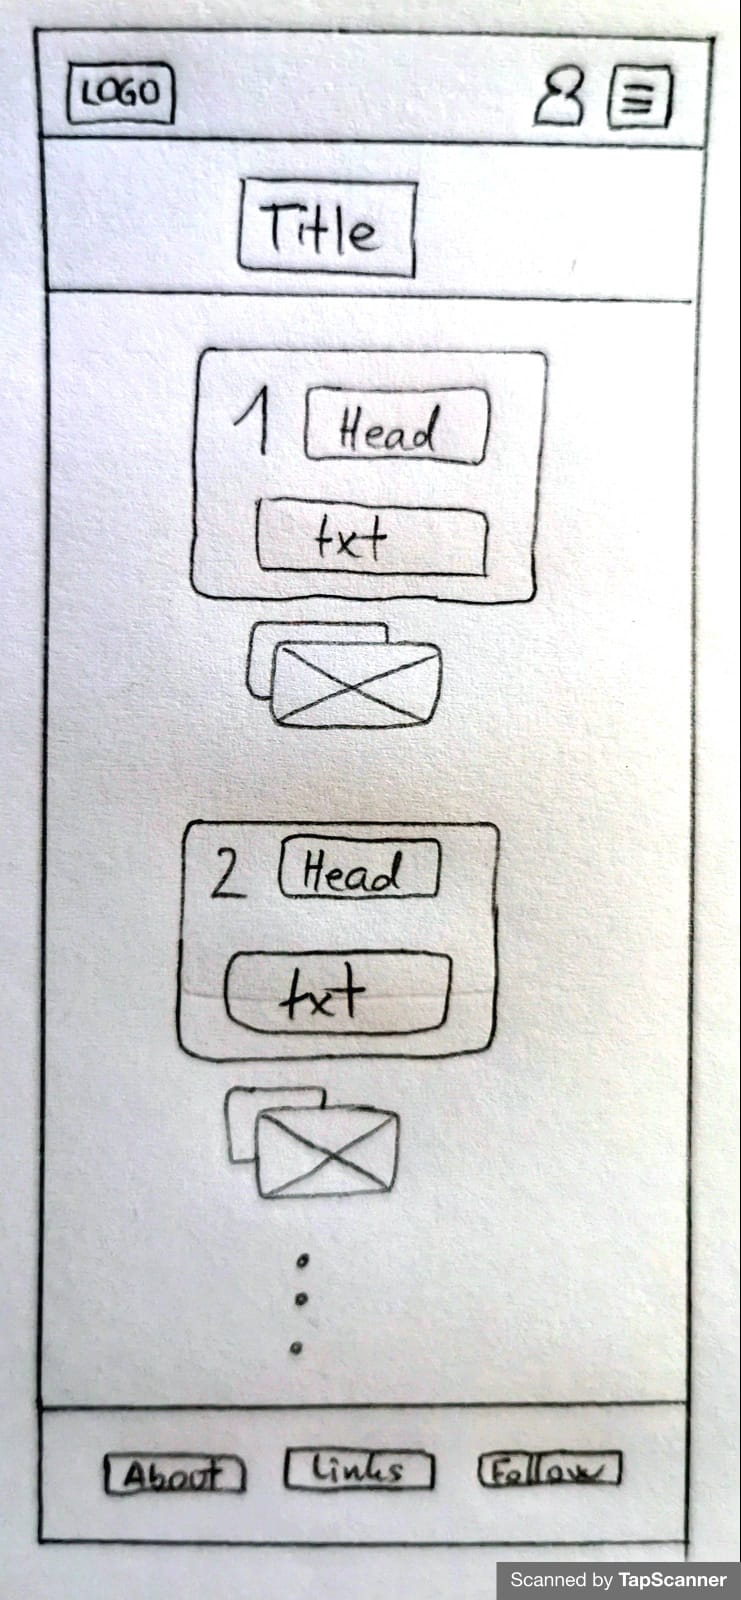 LOGO
Title
1 Head
txt
2 Head
txt
About Links Follow
Scanned by TapScanner